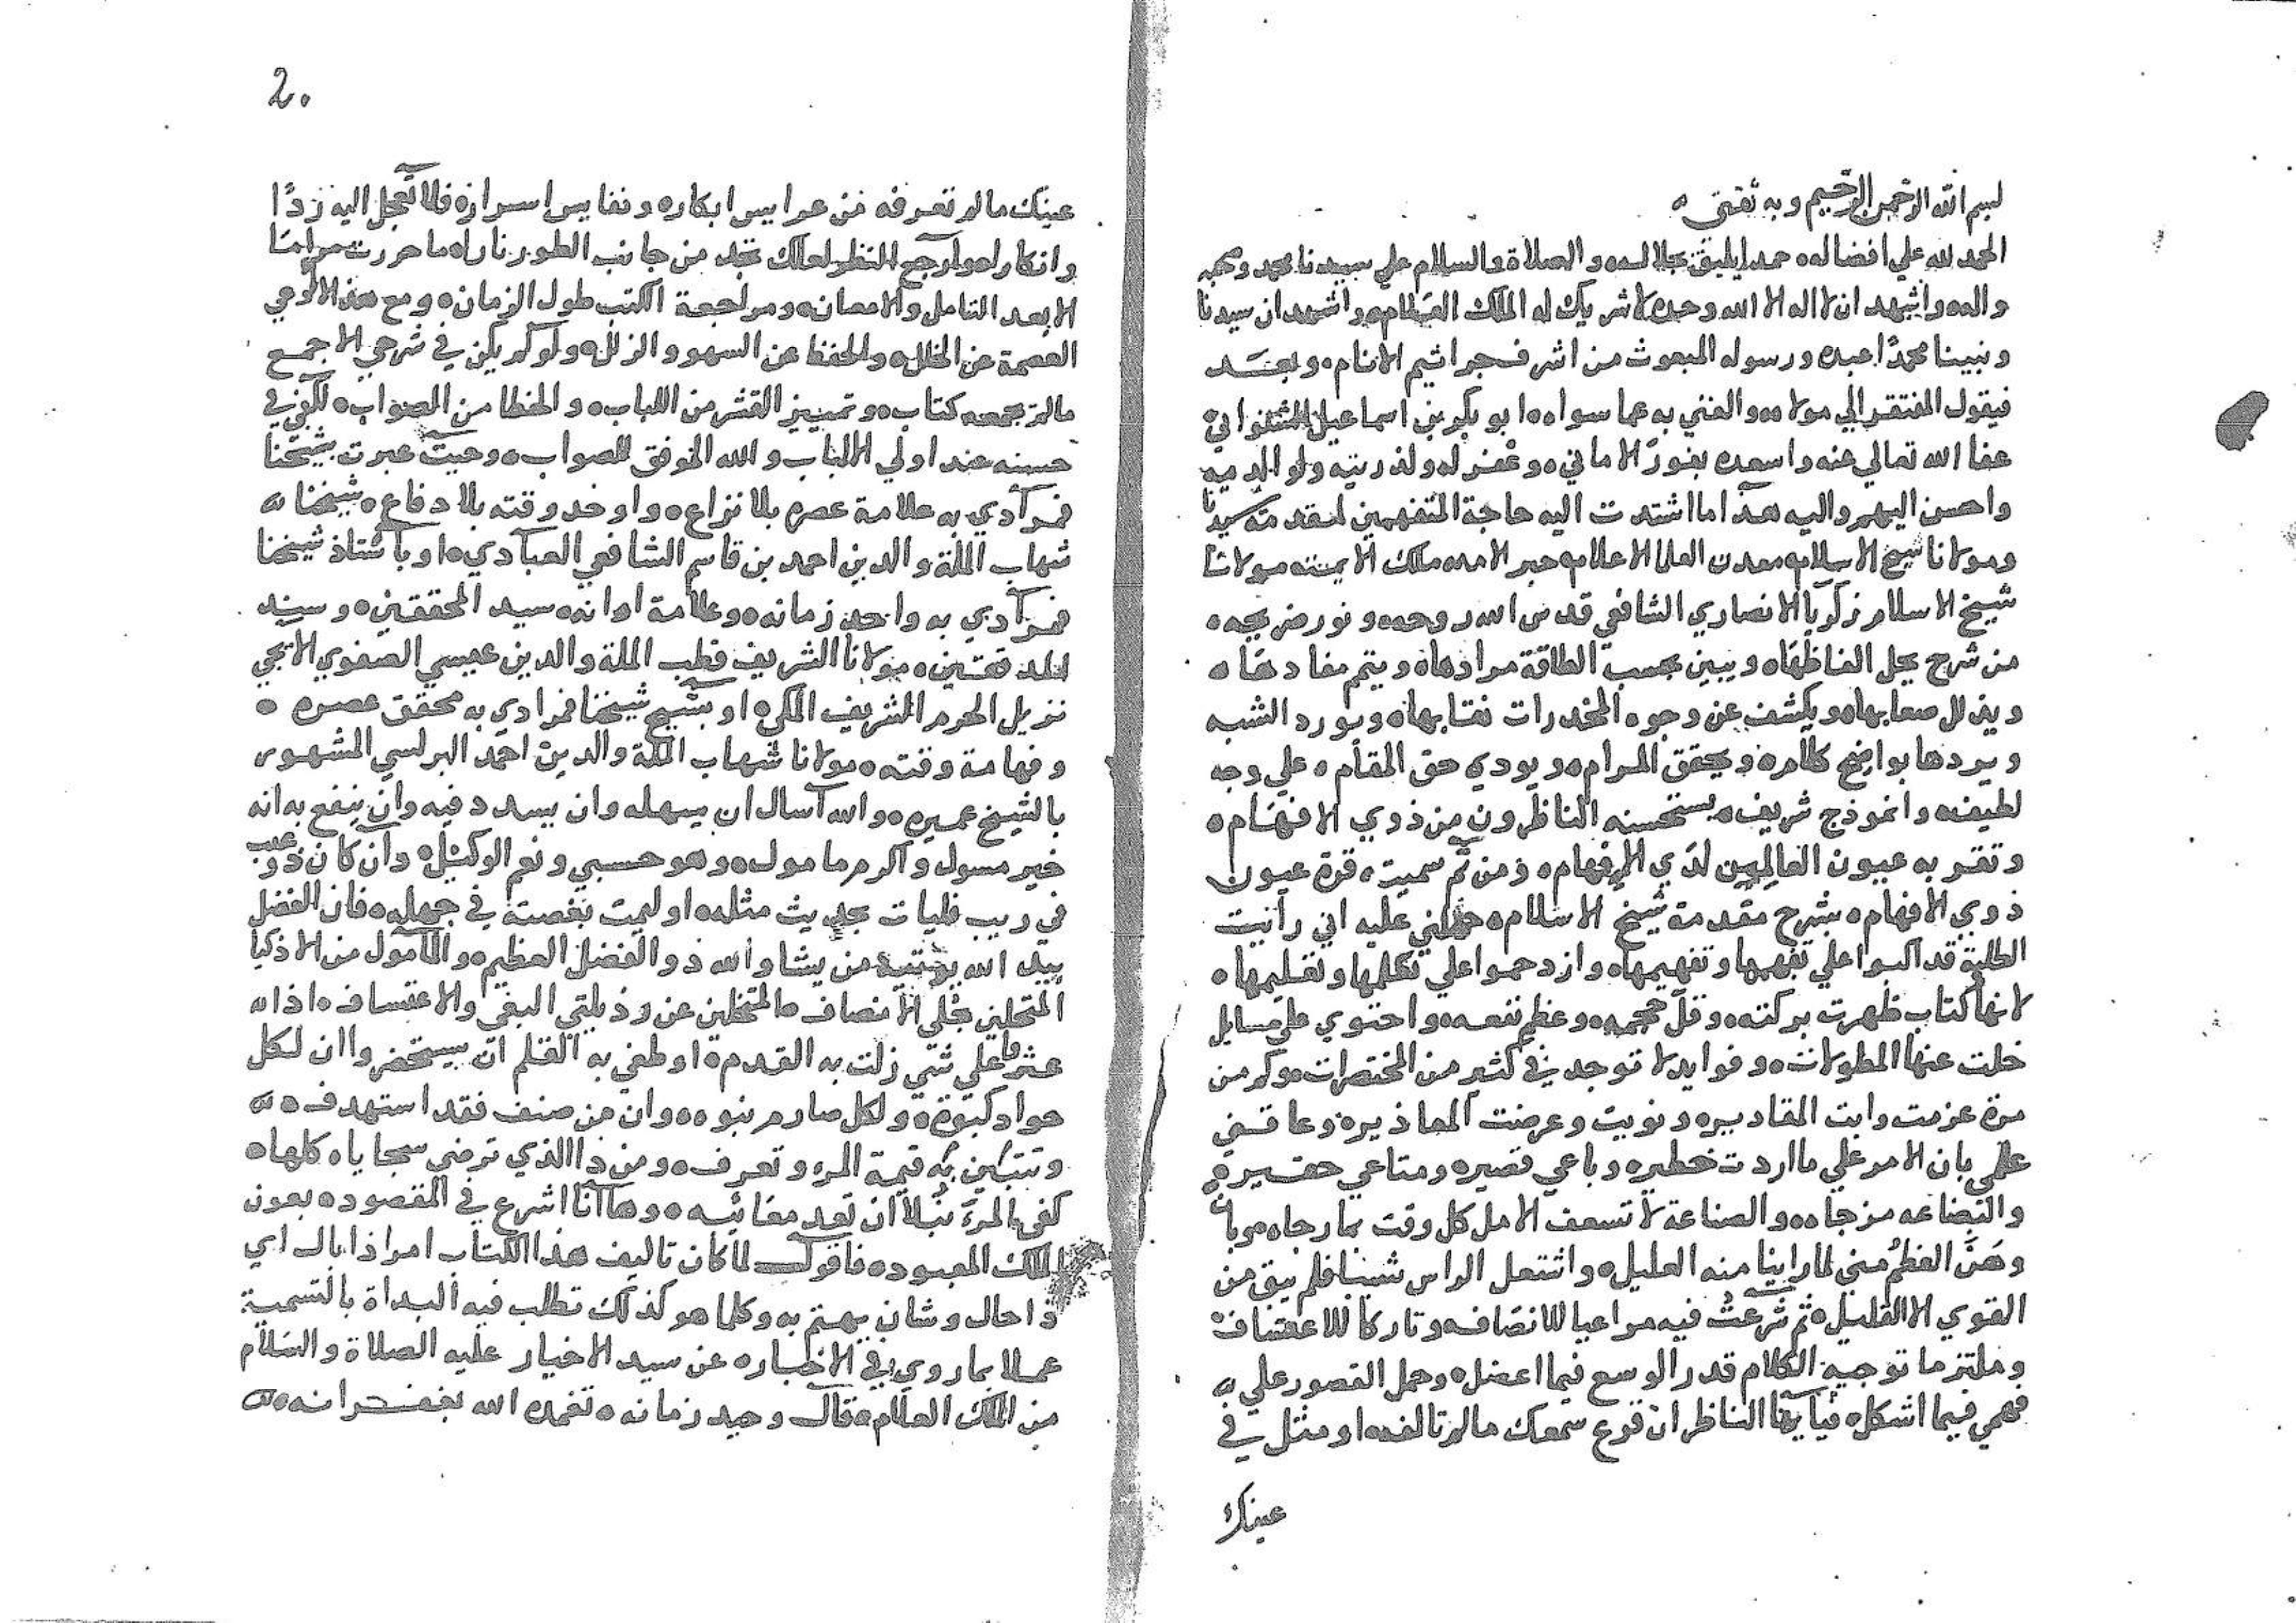 بسم الله الرحمن الرحيم وبه ثقتي
الحمد لله علي افضاله حمدا يليق بجلاله والصلاة والسلام علي سيدنا محمد وصحبه
واله واشهد ان لا اله الا الله وحده لا شريك له الملك العظام واشهد ان سيدنا
ونبينا محمدًا عبده ورسوله المبعوث من اشرف جراثيم الانام وبعد
فيقول المفتقر الي مولاه والغني به عما سواه ابو بكر بن اسماعيل الشنواني
عفا الله تعالي عنه واسعده بفوز الاماني وغفر له ولذريته ولوالديه
واحسن اليهم واليه هذا ما اشتدت اليه حاجة المتفهمين لمقدمة سيدنا
ومولانا شيخ الاسلام معدن العلما الاعلام حبر الامه ملك الايمه مولانا
شيخ الاسلام زكريا الانصاري الشافعي قدس الله روحه ونور ضريحه
من شرح يحل الفاظها ويبين بحسب الطاقة مرادها ويتمم مفادها
ويذلل صعابها ويكشف عن وجوه المخدرات نقابها ويورد الشبه
ويردها بواضح كلام ويحقق المرام ويودي حق المقام علي وجه
لطيف وانموذج شريف يستحسنه الناظرون من ذوي الافهام
وتقر به عيون العالمين لدي الافهام ومن ثم سميته قرة عيون
ذوي الافهام بشرح مقدمة شيخ الاسلام حملني عليه اني رأيت
الطلبة قد اكبوا علي تفهمها وتفهيمها وازدحموا علي تعلمها وتعليمها
لانها كتاب ظهرت بركته وقل حجمه وعظم نفعه واحتوي علي مسايل
خلت عنها المطولات وفوايد لا توجد في كثير من المختصرات وكم من
مرة عزمت وابت المقادير ونويت وعرضت المعاذير وعاقني
علمي بان الامر علي ما اردت خطير وباعي قصير ومتاعي حقير
والبضاعه مزجاه والصناعة لا تسعف الامل كل وقت بما رجاه
وهن العظم مني لما راينا منه العليل واشتعل الراس شيبا فلم يبق من
القوي الا القليل ثم شرعت فيه مراعيا للانصاف وتاركا للاعتساف
وملتزما توجيه الكلام قدر الوسع فيما اعضل وحمل القصور علي
فهمي فيما اشكل فيا ايها الناظر ان قرع سمعك مالم تالفه او مثل في
عينك
2
عينك مالم تعرفه من عرايس ابكاره ونفايس اسراره فلا تعجل اليه ردًا
وانكارا وارجع النظر لعلك تجد من جانب الطور نارا ما حررت مراما
الا بعد التامل والامعان ومراجعة الكتب طول الزمان ومع هذا لا ادعي
العصمة عن الخلل والحفظ عن السهو والزلل ولو لم يكن في شرحي الا جمع
مالم يجمعه كتاب وتمييز القشر من اللباب والخطا من الصواب لكفي في
حسنه عند اولي الالباب والله الموفق للصواب وحيث عبرت بشيخنا
فمرادي به علامة عصره بلا نزاع واوحد وقته بلا دفاع شيخنا
شهاب الملة والدين احمد بن قاسم الشافعي العبادي او باستاذ شيخنا
فمرادي به واحد زمانه وعلامة اوانه سيد المحققين وسند
المدققين مولانا الشريف قطب الملة والدين عيسي الصفوي الايجي
نزيل الحرم الشريف المكي او بشيخ شيخنا فمرادي به محقق عصره
وفهامة وقته مولانا شهاب الملة والدين احمد البرلسي المشهور
بالشيخ عميره والله اسال ان يسهله وان يسدد فيه وان ينفع به انه
خير مسول واكرم مامول وهو حسبي ونعم الوكيل وان كان ذو عيب
في ريب فليات بحديث مثله او ليمت بغصته في جهله فان الفضل
بيد الله يوتيه من يشا والله ذو الفضل العظيم والمامول من الاذكيا
المتحلين بحلي الانصاف المتخلين عن رذيلتي البغي والاعتساف اذا
عثروا علي شي زلت به القدم او طغي به القلم ان يستحضروا ان لكل
جواد كبوة ولكل صارم نبوه وان من صنف فقد استهدف
وتتبين به قيمة المرء وتعرف ومن ذا الذي ترضي سجاياه كلها
كفي المرء نبلا ان تعد معائبه وها انا اشرع في المقصود بعون
الملك المعبود فاقول لما كان تاليف هذا الكتاب امرا ذا بال اي
ذا حال وشان يهتم به وكلما هو كذلك تطلب فيه البداة بالتسمية
عملا بما روي في الاخبار عن سيد الاخيار عليه الصلاة والسلام
من الملك العلام قال وحيد زمانه تغمده الله بغفرانه